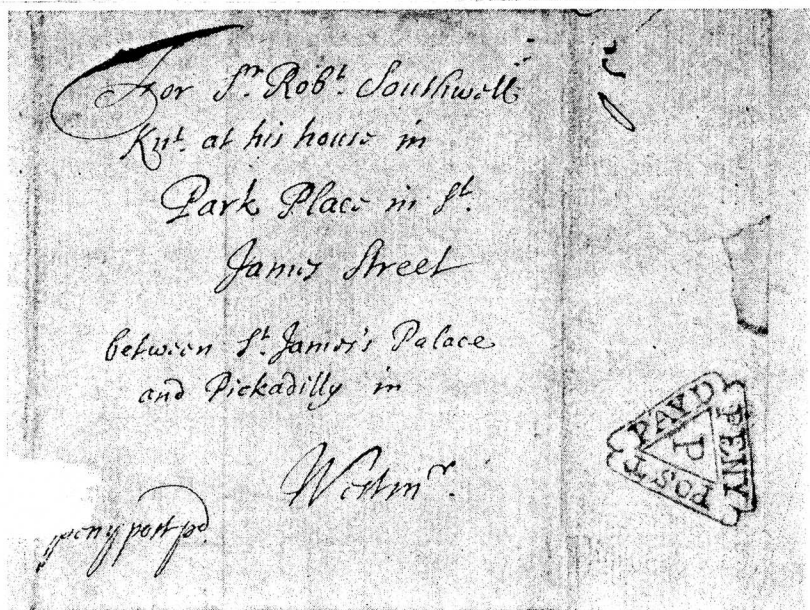 For Sr. Robt. Southwell
Knt. at his house in
Park Place in St.
James Street
between St. James's Palace
and Pickadilly in
Westmr.
peny post pd.
PENY
POST
PAYD
P